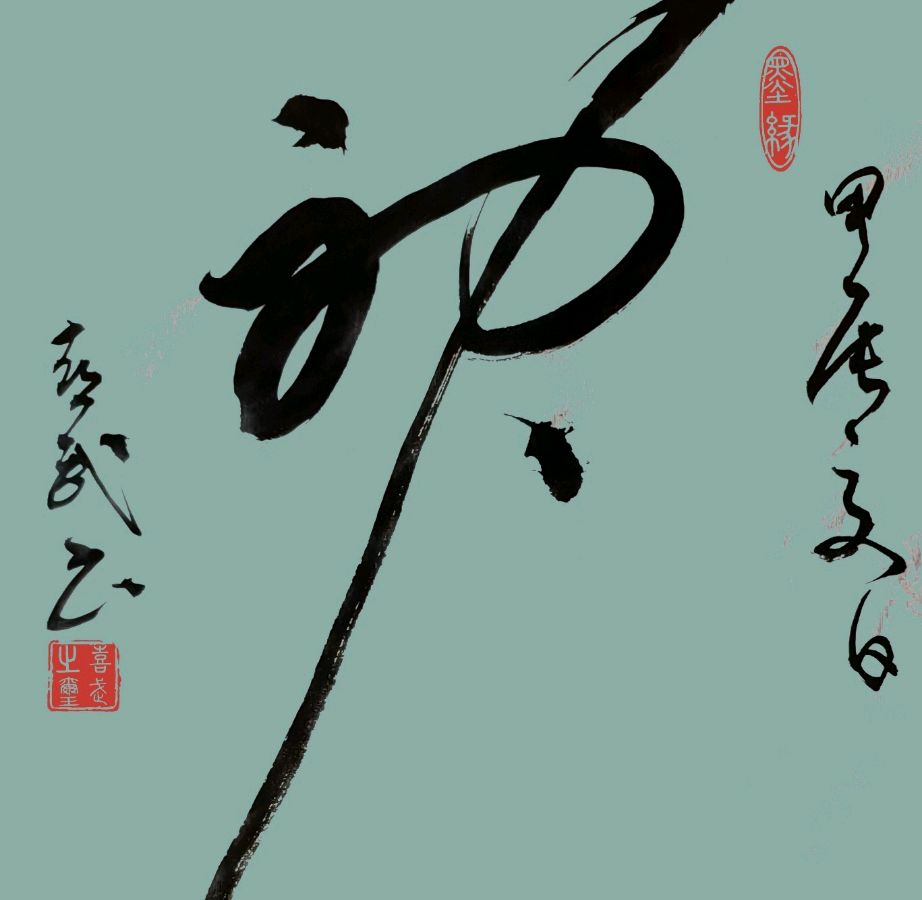 墨緣
甲辰夏日
神
喜武书
喜武之璽